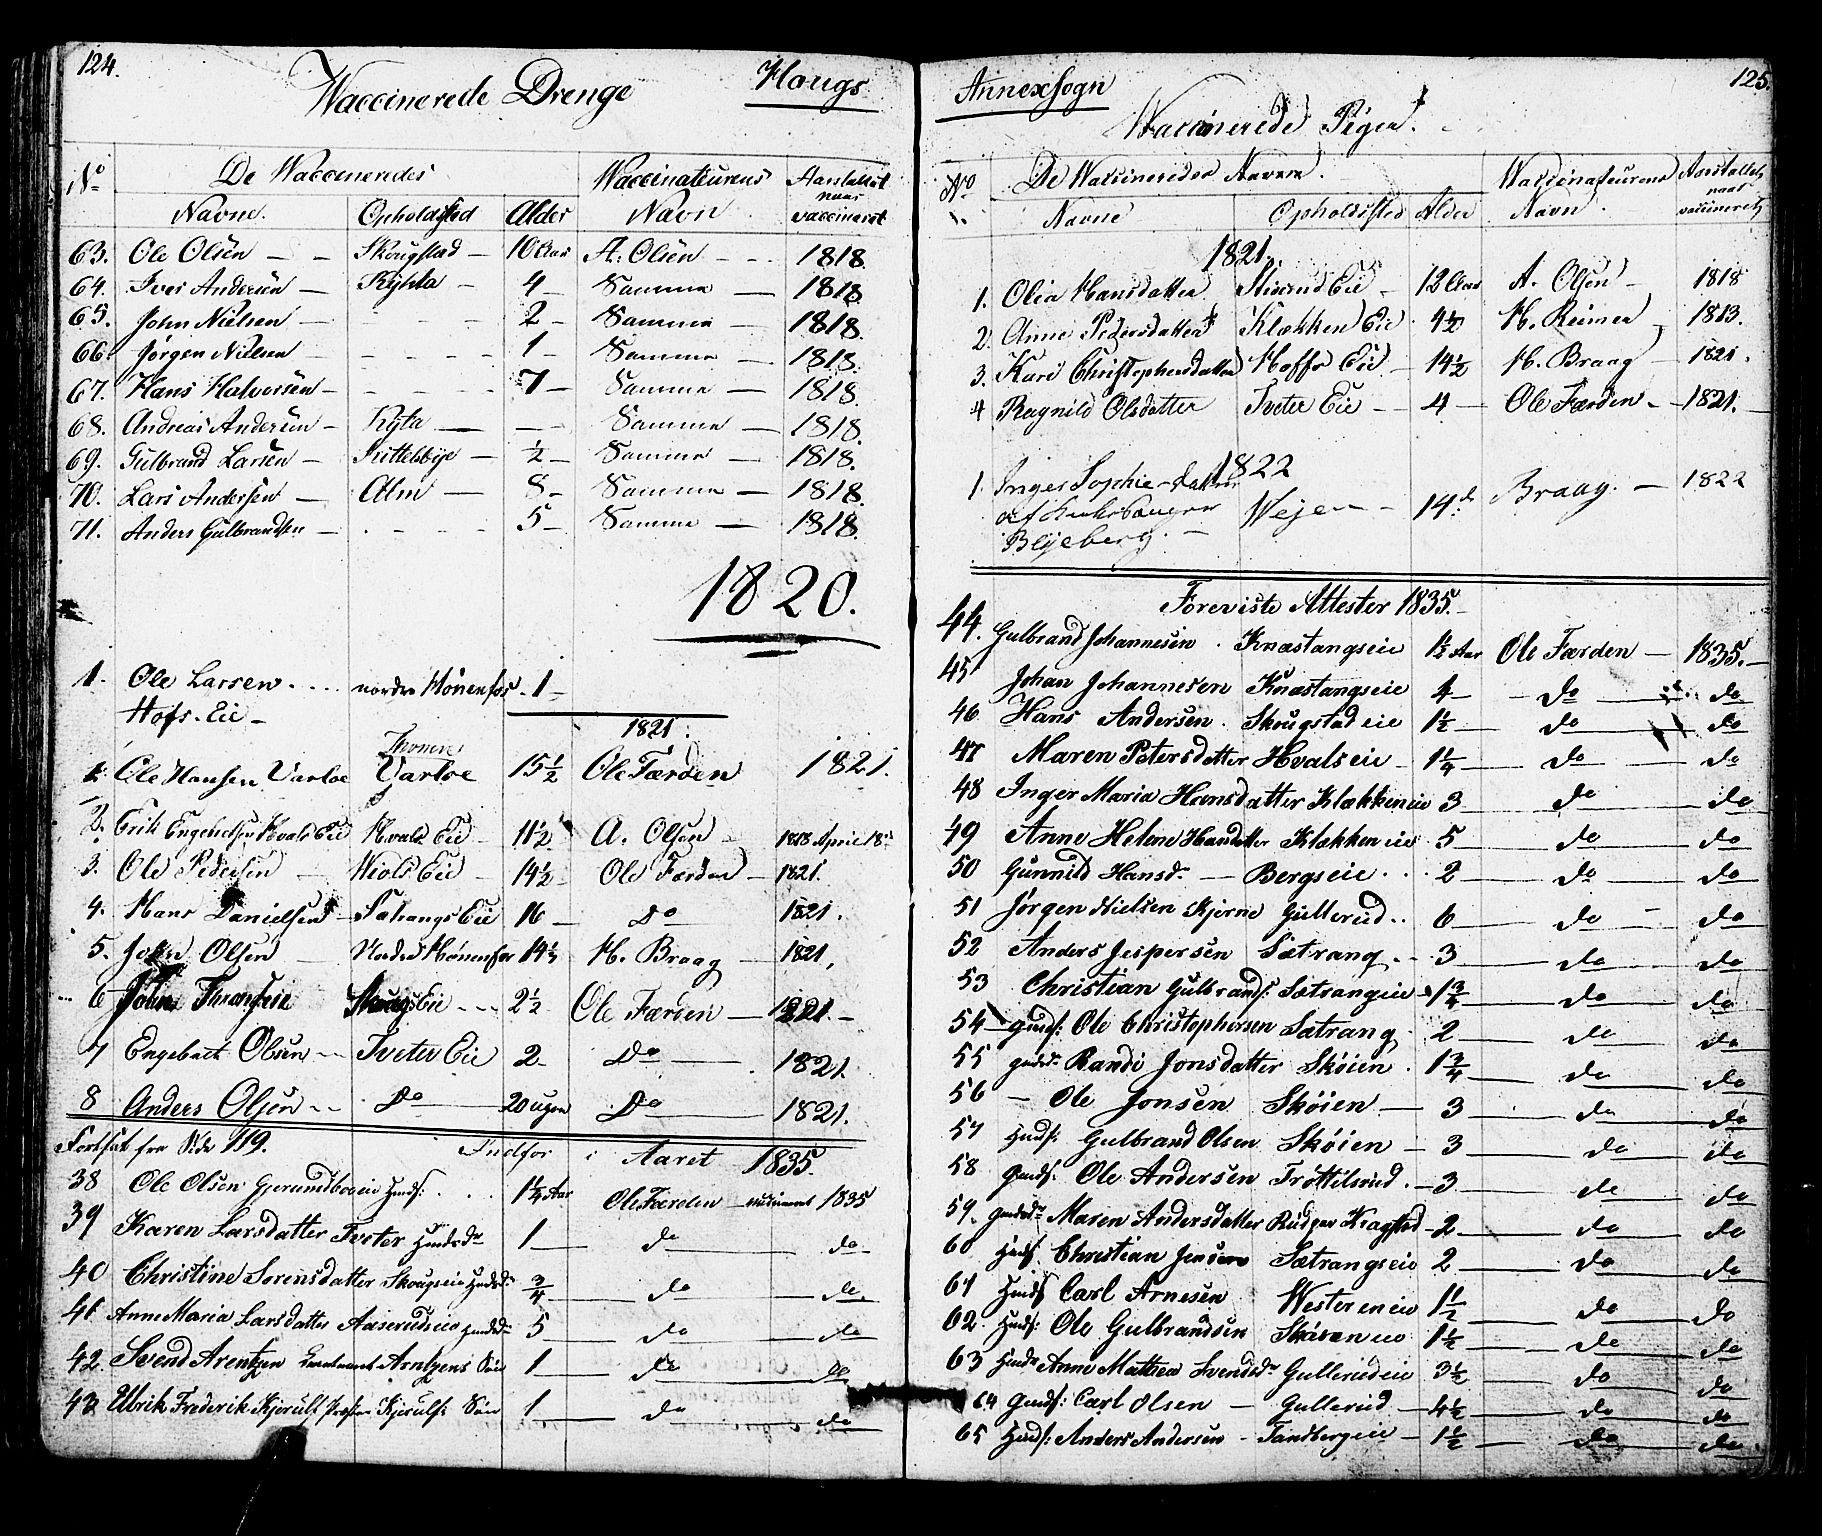 124.
Waccinerede Drenge Hougs
No De Waccineredes Waccinateurens Aarstallet naar vaccineret
Navne. Opholdsted Alder Navn
63. Ole Olsen — Skougstad — 10 Aar A. Olsen - - - 1818.
64. Iver Andersen — Kÿhla - 4 - Samme — 1818.
65. John Nielsen — - - - 2 - Samme — 1818.
66. Jørgen Nielsen - - - - 1 - Samme — 1818.
67. Hans Halvorsen — - - - 7 - Samme — 1818.
68. Andreas Andersen — — - — Samme — 1818.
69. Gulbrand Larsen — — ½ — Samme — 1818.
70. Lars Andersen — Alm — 8 - Samme — 1818.
71. Anders Gulbrandsen — - - - 5 - Samme — 1818.
1820.
1. Ole Larsen. . . . . nordre Hønenfos. 1 —
Hofs. Eie —
1821.
1. Ole Hansen Varloe Varloe 15½ Ole Færden 1821.
2. Erik Engebretsen Hvals Eie Hvals Eie 11½ A. Olsen 1818 April 18
3. Ole Pedersen — Eie - 14½ Ole Færden — 1821.
4. Hans Danielsen — Eie 16 — Do 1821.
5. Olsen — Nordre Hønenfos 14½ H. Braag — 1821,
6 John Eie - - - 2½ Ole Færden — 1821. -
7 Engebret Olsen — Tveter Eie 2 - Do — 1821.
8 Anders Olsen - - Do — 20 ugen Do — 1821.
Fortsat fra Side 119. Indfør i Aaret 1835.
38 Ole Olsen . . . 1¼ Aar Ole Færden — 1835
39 Karen Larsdatter Tveter 1 — do — do
40 Christine Sørensdatter Skougseie ¾ — do — do.
41 Anne Maria Larsdatter Aaserudeie 5 — do — do
42. Svend Arentzen Arntzens Søn 1 — do — do
43 Ulrik Frederik Kjerulf Kjerulfs Søn 1 — do — do
Annexsogn 125.
Waccinerede Piger.
No De Waccineredes Navne. Waccinateurens Aarstallet naar vaccineret
Navne Opholdsted Alder Navn
1821.
1. Olia Hansdatter Eie - 12 Aar A. Olsen - 1818
2. Anne Pedersdatter Klækken Eie 4½ H. Reimer 1813.
3. Kari Christophersdatter Hoffs Eie - 14½ H. Braag — 1821.
4 Ragnild Olsdatter Tveter Eie - - 4 — Ole Færden - 1821. —
1822
1. Inger Sophie datter Braag. — 1822
af Wejen - 14
Bÿeberg. -
Foreviste Attester 1835. -
44. Gulbrand Johannesen . Knæstangseie 1½ Aar Ole Færden — 1835. —
45 Johan Johannesen Knæstangseie 4 — do — do
46 Hans Andersen. Skougstadeie 1½ — do — do
47 Maren Petersdatter Hvalseie — 1¼ — do — do
48 Inger Maria Hansdatter Klækkeneie 3 — do do
49 Anne Helene Hansdatter Klækkeneie 5 — do — do
50 Gunnild Hansd. — Bergseie . . . 2 — do — do
51 Jørgen Nielsen Kjerne Gullerud . . 6 — do — do
52 Anders Jespersen Sætrang . . 3 — do — do
53 Christian Gulbrands. Sætrangseie 1¾ — do — do
54 — Ole Christophersen Sætrang 2 — do — do
55 Randi Jonsdatter Skøien . 1¾ — do — do
56 — Ole Jonsen Skøien — 3 — do — do
57 Gulbrand Olsen Skøien — 3 — do — do
58 Ole Andersen . — 3 — do — do
59. Maren Andersdatter — 2 — do — do
60 Christian Jensen Sætrangseie 2 — do — do
61 Carl Arnesen Westereneie 1½ — do — do
62 Ole Gulbrandsen 1½ — do — do
63 Anne Mathea Svendsdr Gullerudeie 3½ — do — do
64 Carl Olsen — Gullerud — 4½ — do — do
65 Anders Andersen — Tandbergeie — 1½ — do — do